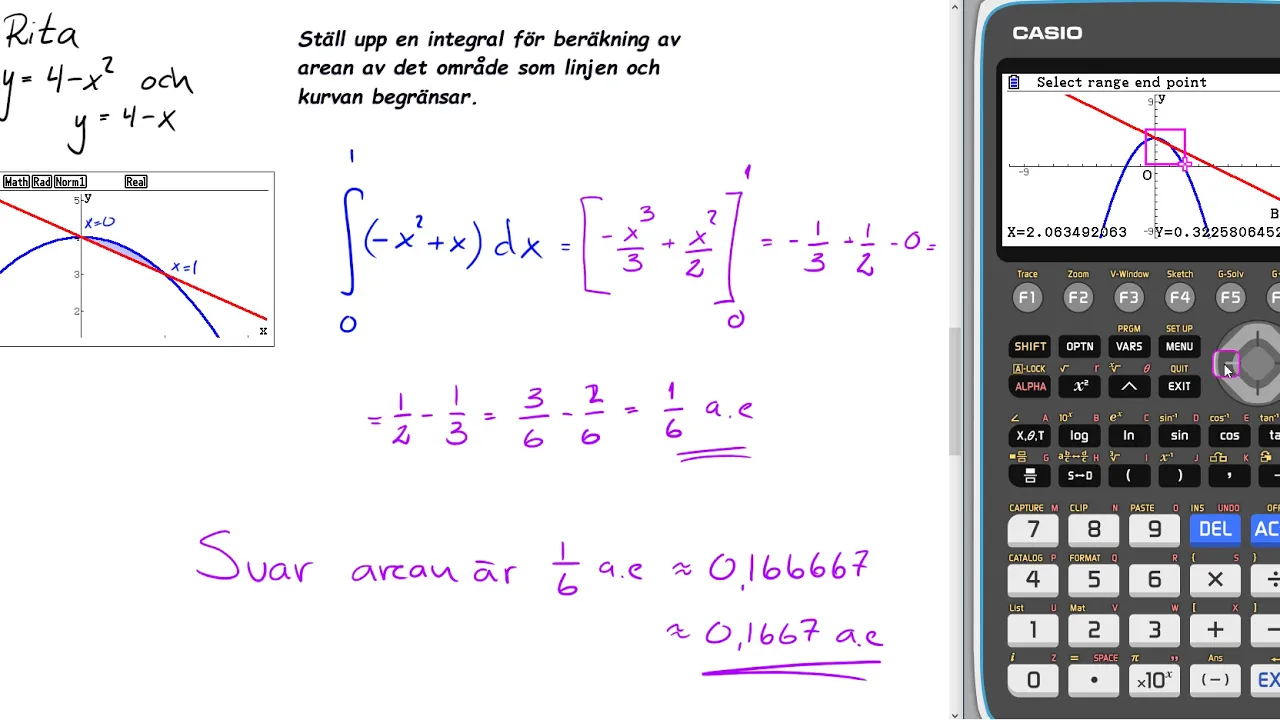 Rita
y = 4-x² och
y = 4-x
Ställ upp en integral för beräkning av
arean av det område som linjen och
kurvan begränsar.
Math Rad Norm1 Real
y
5
x=0
x=1
3
2
x
∫₀¹ (-x²+x) dx = [-x³/3 + x²/2]₀¹ = -1/3 + 1/2 - 0 =
= 1/2 - 1/3 = 3/6 - 2/6 = 1/6 a.e
Svar arean är 1/6 a.e ≈ 0,166667
≈ 0,1667 a.e
CASIO
Select range end point
9 y
-9 O
B
X=2.063492063 -9 Y=0.3225806452
Trace Zoom V-Window Sketch G-Solv G-
F1 F2 F3 F4 F5
PRGM SET UP
SHIFT OPTN VARS MENU
A-LOCK √ r ˣ√ θ QUIT
ALPHA x² ^ EXIT
∠ A 10ˣ B eˣ C sin⁻¹ D cos⁻¹ E tan⁻¹
X,θ,T log ln sin cos ta
G H ³√ I x⁻¹ J K
S↔D ( ) ,
CAPTURE M CLIP N PASTE O INS UNDO OF
7 8 9 DEL AC
CATALOG P FORMAT Q R { S }
4 5 6 × ÷
List U Mat V W [ X ]
1 2 3 + −
i Z = SPACE π Ans
0 • ×10ˣ (−) EX